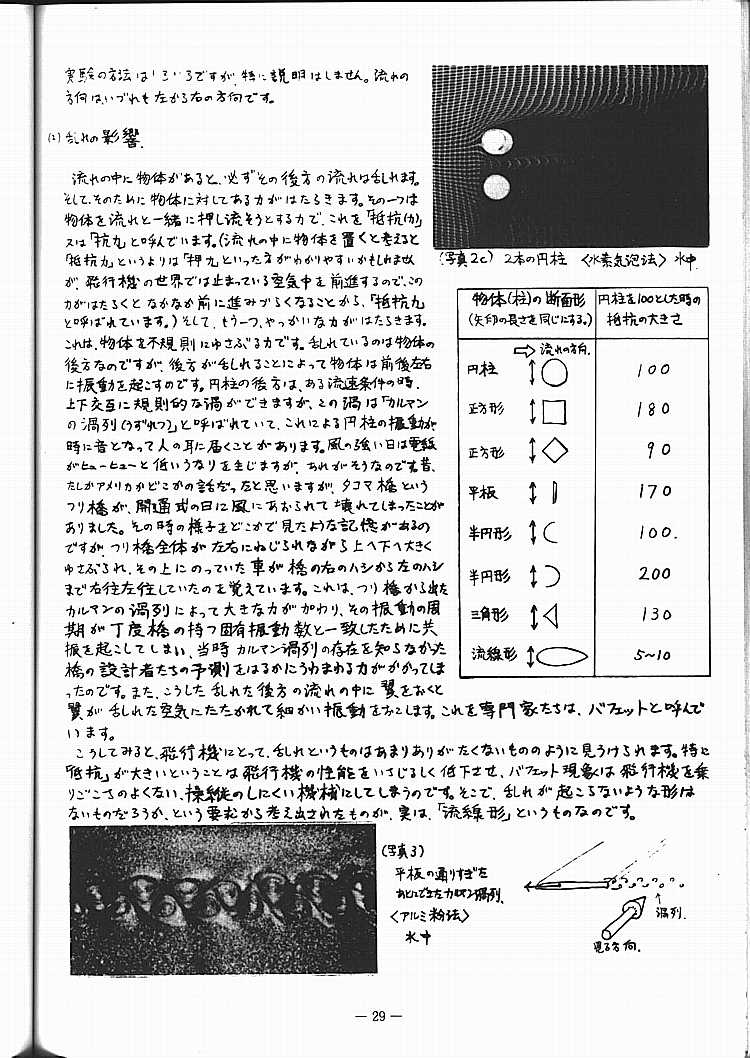 実験の方法はいろいろですが、特に説明はしません。流れの
方向は、いづれも左から右の方向です。
(2) 乱れの影響
流れの中に物体があると、必ずその後方の流れは乱れます。
そして、そのために物体に対してある力がはたらきます。その一つは
物体を流れと一緒に押し流そうとする力で、これを「抵抗(力)」
又は「抗力」と呼んでいます。(流れの中に物体を置くと考えると
「抵抗力」というよりは「押力」といった方がわかりやすいかもしれません
が、飛行機の世界では止まっている空気中を前進するので、この
力がはたらくとなかなか前に進みづらくなることから、「抵抗力」
と呼ばれています。)そして、もう一つ、やっかいな力がはたらきます。
これは、物体を不規則にゆさぶる力です。乱れているのは物体の
後方なのですが、後方が乱れることによって物体は前後左右
に振動を起こすのです。円柱の後方は、ある流速条件の時、
上下交互に規則的な渦ができますが、この渦は「カルマン
の渦列(うずれつ)」と呼ばれていて、これによる円柱の振動が
時に音となって人の耳に届くことがあります。風の強い日は電線
がヒューヒューと低いうなりを生じますが、あれがそうなのです。昔、
たしかアメリカかどこかの話だったと思いますが、タコマ橋という
つり橋が、開通式の日に風にあおられて壊れてしまったことが
ありました。その時の様子をどこかで見たような記憶があるの
ですが、つり橋全体が左右にねじられながら上へ下へ大きく
ゆさぶられ、その上にのっていた車が橋の右のハシから左のハシ
まで右往左往していたのを覚えています。これは、つり橋から出た
カルマンの渦列によって大きな力が加わり、その振動の周
期が丁度橋の持つ固有振動数と一致したために共
振を起こしてしまい、当時カルマン渦列の存在を知らなかった
橋の設計者たちの予測をはるかにうわまわる力がかかってしま
ったのです。また、こうした乱れた後方の流れの中に翼をおくと
翼が乱れた空気にたたかれて細かい振動をおこします。これを専門家たちは、バフェットと呼んで
います。
こうしてみると、飛行機にとって、乱れというものはあまりありがたくないもののように見うけられます。特に
「抵抗」が大きいということは飛行機の性能をいちじるしく低下させ、バフェット現象は飛行機を乗
りごこちのよくない、操縦のしにくい機械にしてしまうのです。そこで、乱れが起こらないような形は
ないものだろうか、という要求から考え出されたものが、実は、「流線形」というものなのです。
(写真2c) 2本の円柱 〈水素気泡法〉 水中
物体(柱)の断面形
(矢印の長さを同じにする。)
円柱を100とした時の
抵抗の大きさ
流れの方向
円柱 100
正方形 180
正方形 90
平板 170
半円形 100.
半円形 200
三角形 130
流線形 5~10
(写真3)
平板の通りすぎた
あとにできたカルマン渦列.
〈アルミ粉法〉
水中
渦列.
見る方向.
— 29 —